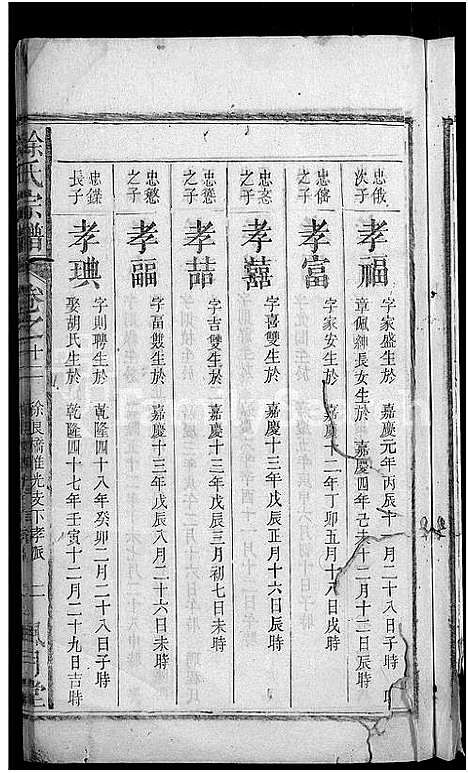 忠俄次子
孝福
字家盛生於 嘉慶元年丙辰十 月二十八日子時
章佩紳長女生於 嘉慶四年己未十二月十二日辰時
忠僃之子
孝富
字家安生於 嘉慶十二年丁卯五月十八日戌時
忠 之子
孝囍
字喜雙生於 嘉慶十三年戊辰正月十六日辰時
忠 之子
孝喆
字吉雙生於 嘉慶十三年戊辰三月初七日未時
忠 之子
孝畐畐
字畐雙生於 嘉慶十三年戊辰八月二十六日未時
忠鑅長子
孝琠
字則聘生於 乾隆四十八年癸卯二月二十八日子時
娶胡氏生於 乾隆四十七年壬寅十二月二十九日吉時
徐氏宗譜 卷之十二 徐良 惟光支下孝派 二 風月堂